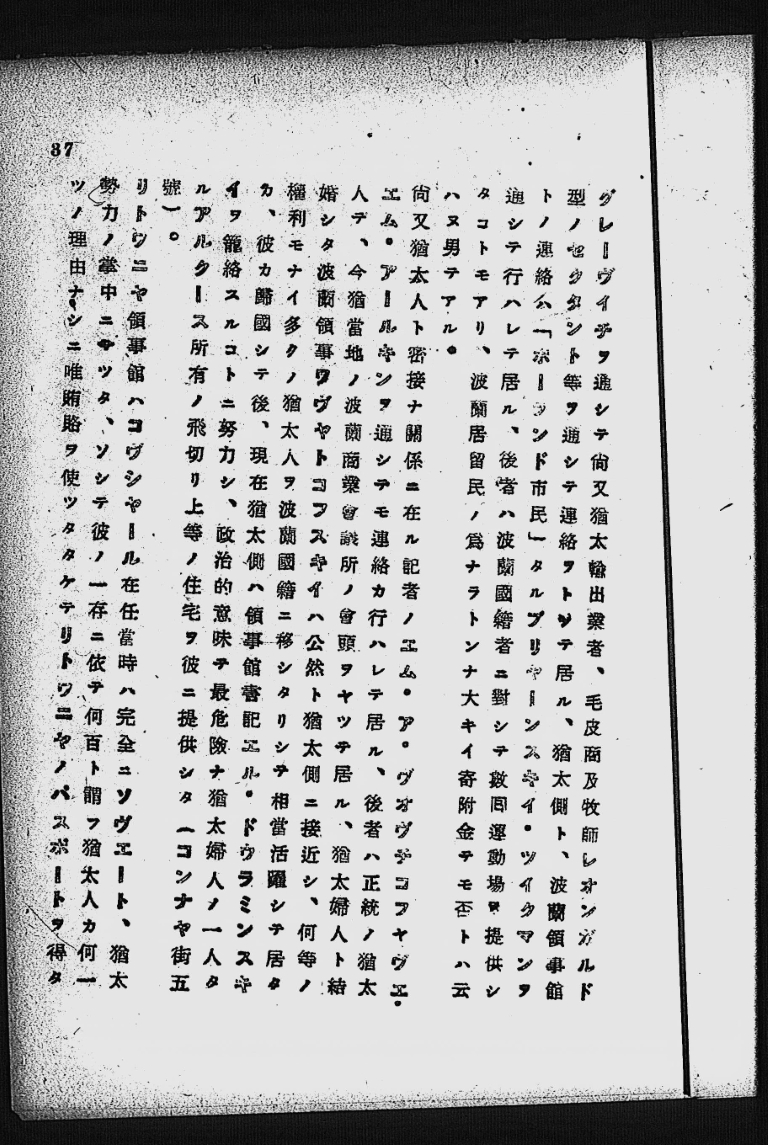 グレーヴイチヲ通シテ尙又猶太輸出業者、毛皮商及牧師レオンガルド
型ノセクタント等ヲ通シテ連絡ヲトツテ居ル、猶太側ト、波蘭領事館
トノ連絡ハ「ポーランド市民」タルブリヤーンスキイ・ツイクマンヲ
通シテ行ハレテ居ル、後者ハ波蘭國籍者ニ對シテ數囘運動場ヲ提供シ
タコトモアリ、波蘭居留民ノ爲ナラトンナ大キイ寄附金テモ否トハ云
ハヌ男テアル。
尙又猶太人ト密接ナ關係ニ在ル記者ノエム・ア・ヴオヴチコフヤヴエ・
エム・アールキンヲ通シテモ連絡カ行ハレテ居ル、後者ハ正統ノ猶太
人デ、今猶當地ノ波蘭商業會議所ノ會頭ヲヤツテ居ル、猶太婦人ト結
婚シタ波蘭領事ワヴヤトコフスキイハ公然ト猶太側ニ接近シ、何等ノ
權利モナイ多クノ猶太人ヲ波蘭國籍ニ移シタリシテ相當活躍シテ居タ
カ、彼カ歸國シテ後、現在猶太側ハ領事館書記エル・ドウラミンスキ
イヲ籠絡スルコトニ努力シ、政治的意味テ最危險ナ猶太婦人ノ一人タ
ルアルタース所有ノ飛切リ上等ノ住宅ヲ彼ニ提供シタ（コンナヤ街五
號）。
リトウニヤ領事館ハコヴシヤール在任當時ハ完全ニソヴエート、猶太
勢力ノ掌中ニアツタ、ソシテ彼ノ一存ニ依テ何百ト謂フ猶太人カ何一
ツノ理由ナシニ唯賄賂ヲ使ツタタケテリトウニヤノパスポートヲ得タ
37